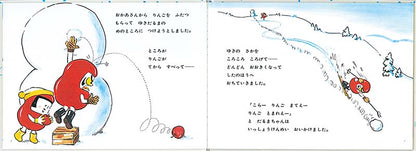 おかあさんから りんごを ふたつ
もらって ゆきだるまの
めのところに つけようとしました。
ところが
りんごが
てから すべって――
ゆきの さかを
ころころ ころげて――
どんどん おおきくなって
したのほうへ
おちていきました。
「こらー りんご まてえー
りんご とまれえー」
と だるまちゃんは
いっしょうけんめい おいかけました。